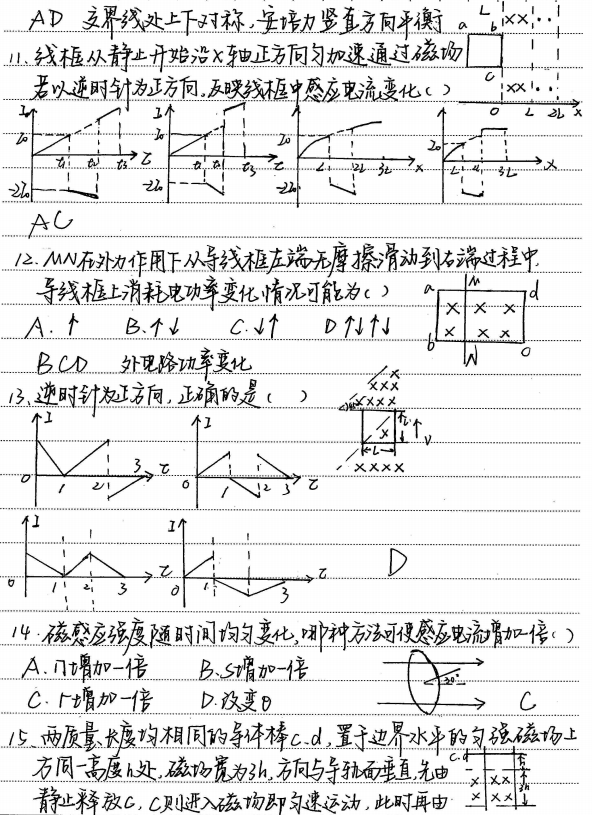 AD 交界线处上下对称，安培力竖直方向平衡
11. 线框从静止开始沿x轴正方向匀加速通过磁场
若以逆时针为正方向，反映线框中感应电流变化（ ）
a L b ×× ··
c
×× ··
0 L 2L x
I I I I
I₀ I₀ I₀ I₀
t₁ t₂ t₃ t t₁ t₂ t₃ t L 2L 3L x L 2L 3L x
-2I₀ -2I₀ -2I₀
AC
12. MN在外力作用下从导线框左端无摩擦滑动到右端过程中，
导线框上消耗电功率变化情况可能为（ ）
A. ↑ B. ↑↓ C. ↓↑ D ↑↓↑↓
a M d
× × ×
× × ×
b N c
BCD 外电路功率变化
13、逆时针为正方向，正确的是（ ）
×
×××
××××
×
L
L
v
××××
I I
0 1 2 3 t 0 1 2 3 t
I I
0 1 2 3 t 0 1 2 3 t
D
14. 磁感应强度随时间均匀变化，哪种方法可使感应电流增加一倍（ ）
A. n增加一倍 B. S增加一倍
C. r增加一倍 D. 改变θ
30°
C
15、两质量长度均相同的导体棒c、d，置于边界水平的匀强磁场上
方同一高度h处，磁场宽为3h，方向与导轨面垂直，先由
静止释放c，c刚进入磁场即匀速运动，此时再由
c.d
h
× ××
× ××
3h